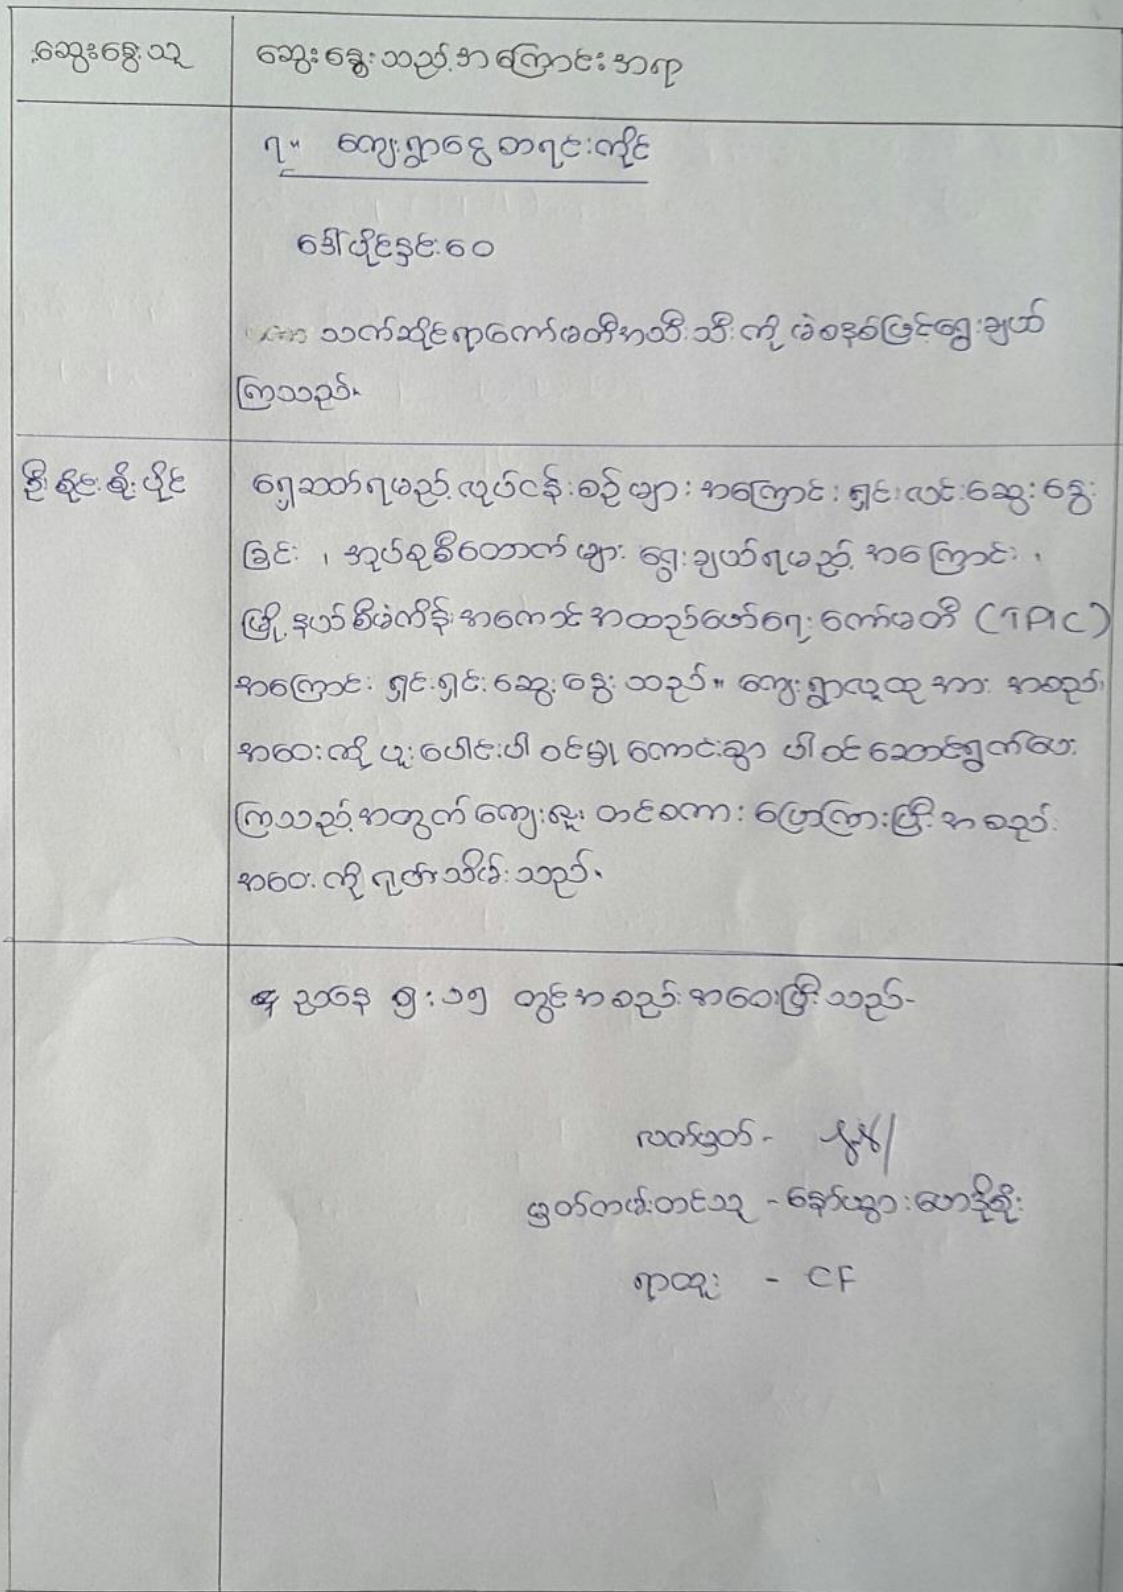 ဆွေးနွေးသူ
ဆွေးနွေးသည့်အကြောင်းအရာ
၇။ ကျေးရွာငွေစာရင်းကိုင်
ဒေါ်ပိုင်နှင်းဝေ
သက်ဆိုင်ရာကော်မတီအသီးသီးကို မဲစနစ်ဖြင့်ရွေးချယ်
ကြသည်။
ဦးစိုင်းစိုးပိုင်
ရှေ့ဆက်ရမည့်လုပ်ငန်းစဉ်များအကြောင်းရှင်းလင်းဆွေးနွေး
ခြင်း ၊ အုပ်စုမိတောက်များ ရွေးချယ်ရမည့်အကြောင်း ၊
မြို့နယ်စီမံကိန်းအကောင်အထည်ဖော်ရေးကော်မတီ (TPIC)
အကြောင်း ရှင်းရှင်းဆွေးနွေးသည်။ ကျေးရွာလူထုအား အစည်း
အဝေးသို့ ပူးပေါင်းပါဝင်မှု ကောင်းစွာ ပါဝင်ဆောင်ရွက်ပေး
ကြသည့်အတွက်ကျေးဇူးတင်စကားပြောကြားပြီးအစည်း
အဝေးကိုရုတ်သိမ်းသည်။
ညနေ ၅:၁၅ တွင်အစည်းအဝေးပြီးသည်-
လက်မှတ် -
မှတ်တမ်းတင်သူ - နော်ယွားဟေဒိုစိုး
ရာထူး - CF